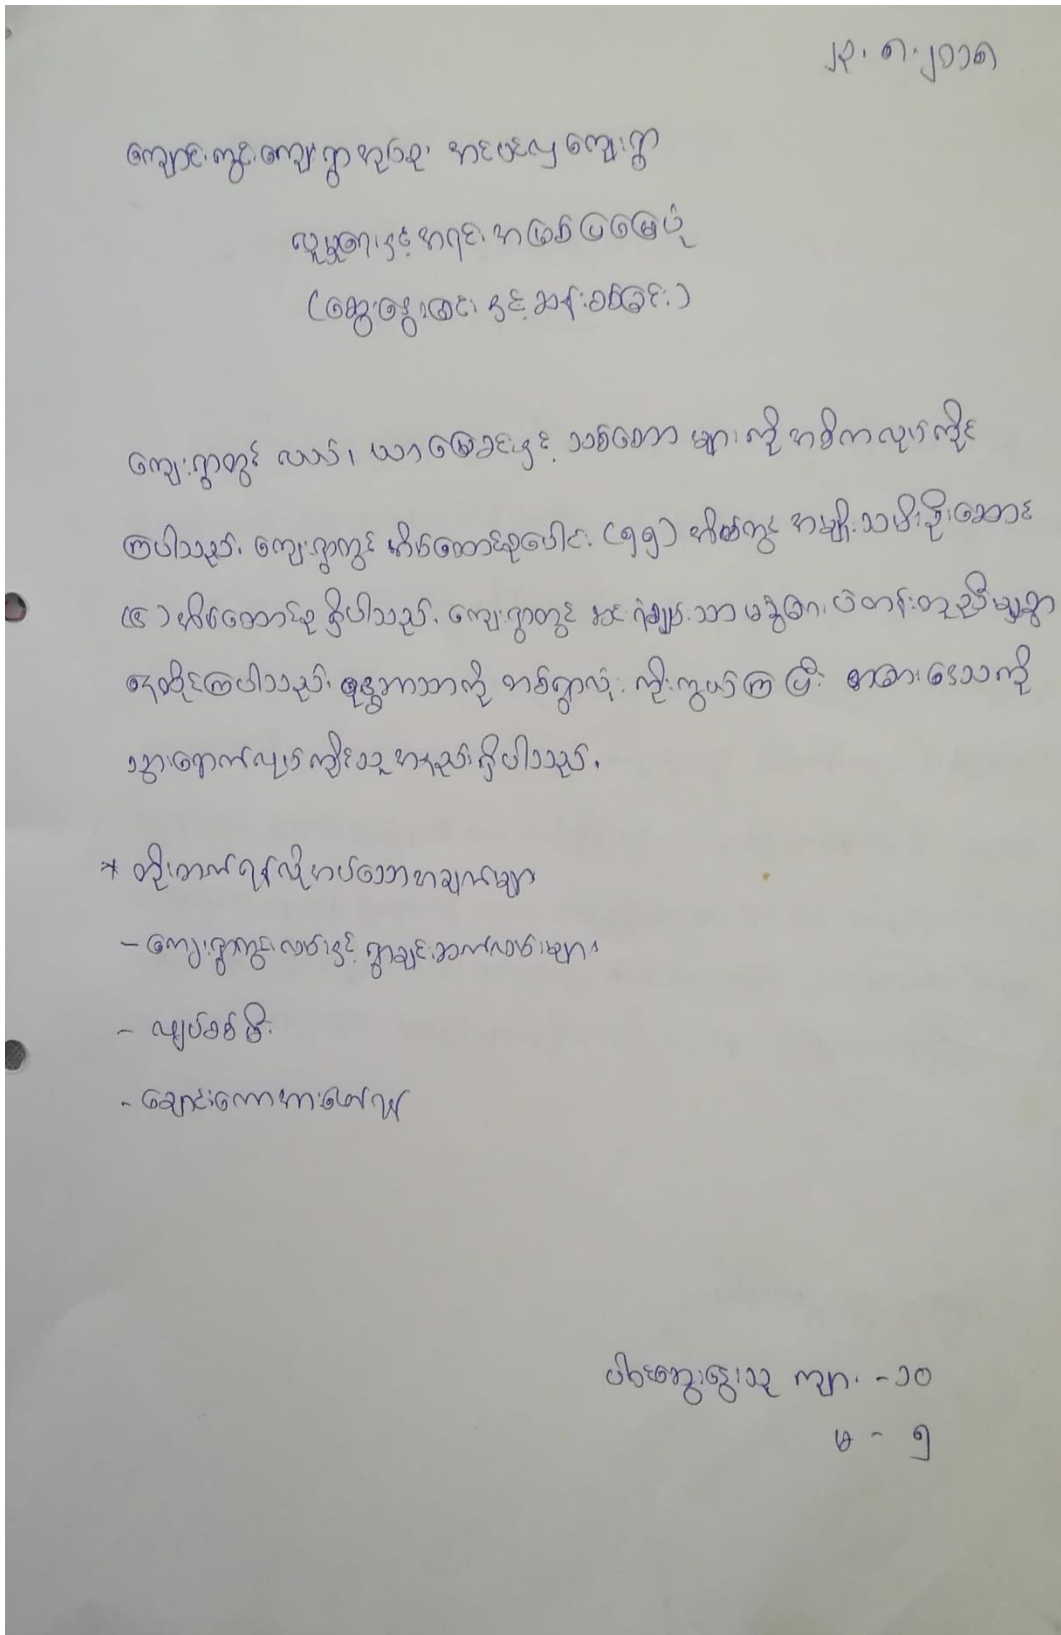 ၂၃. ၈. ၂၀၁၈
ကျောင်းကွင်းကျေးရွာအုပ်စု၊ အင်ပင်လှ ကျေးရွာ
လူမှုရေးနှင့် အရင်းအမြစ်ပြမြေပုံ
(ဆွေးနွေးခြင်း နှင့် ဆန်းစစ်ခြင်း)
ကျေးရွာတွင် လယ်၊ ယာမြေခင်းနှင့် သစ်တော များကို အဓိကလုပ်ကိုင်
ကြပါသည်၊ ကျေးရွာတွင် အိမ်ထောင်စုပေါင်း (၅၅) အိမ်တွင် အမျိုးသမီးဦးဆောင်
(၄) အိမ်ထောင်စု ရှိပါသည်. ကျေးရွာတွင် ဆင်းရဲချမ်းသာ မခွဲခြား ပဲတန်းတူညီမျှစွာ
နေထိုင်ကြပါသည်၊ ဗုဒ္ဓဘာသာကို တစ်ရွာလုံး ကိုးကွယ်ကြပြီး အခြားဒေသကို
သွားရောက်လုပ်ကိုင်သူအနည်းရှိပါသည်.
* တိုးတက်ရန်လိုအပ်သောအချက်များ
- ကျေးရွာတွင်းလမ်းနှင့် ရွာချင်းဆက်လမ်းများ
- လျှပ်စစ်မီး
- ချောင်းကော
ပါဝင်ဆွေးနွေးသူ ကျား - ၁၀
မ - ၅